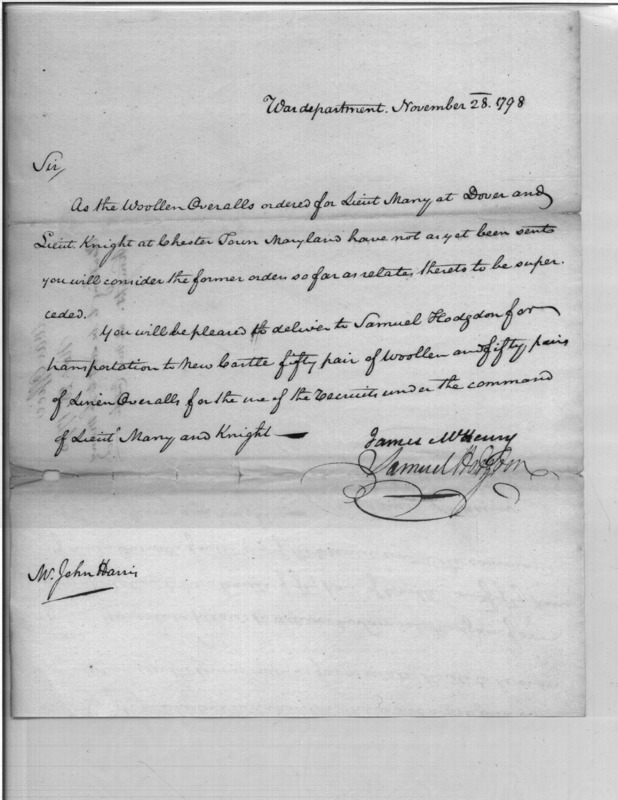 War department. November 28. 1798
Sir,
As the Woollen Overalls ordered for Lieut Many at Dover and
Lieut. Knight at Chester Town Maryland have not as yet been sent
you will consider the former order so far as relates thereto to be super.
ceded.
You will be pleased to deliver to Samuel Hodgdon for
transportation to New Castle fifty pair of Woollen and fifty pairs
of Linen Overalls for the use of the Recruits under the command
of Lieuts Many and Knight
James McHenry
Samuel Hodgdon
Mr. John Harris